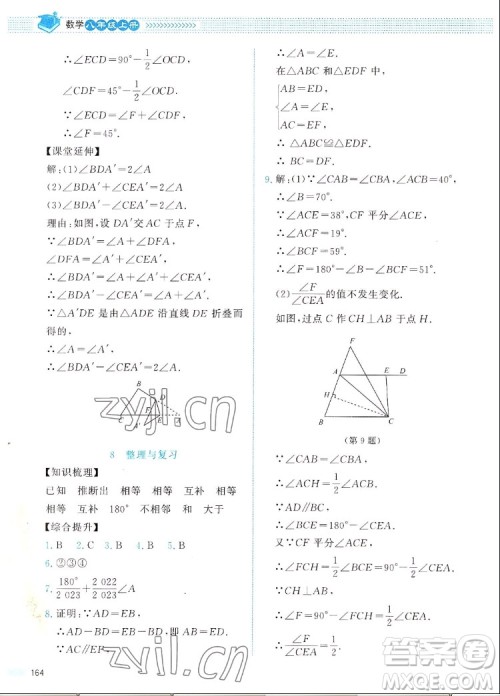 数学八年级上册
∴∠ECD=90°-1/2∠A.
∠CDF=45°-1/2∠A.
∵∠ECD=∠F+∠CDF,
∴∠F=45°.
【课堂延伸】
解:(1)∠BDA′=2∠A
(2)∠BDA′+∠CEA′=2∠A
(3)∠BDA′-∠CEA′=2∠A
理由:如图,设DA′交AC于点F,
∵∠BDA′=∠A+∠DFA,
∠DFA=∠A′+∠CEA′,
∴∠BDA′=∠A+∠A′+∠CEA′.
∵△A′DE是由△ADE沿直线DE折叠而
得的,
∴∠A=∠A′.
∴∠BDA′-∠CEA′=2∠A.
B
D
F
E
A′
C
8 整理与复习
【知识梳理】
已知 推断出 相等 相等 互补 相等
相等 互补 180° 不相邻 和 大于
【综合提升】
1. B 2. C 3. B 4. B 5. B
6. ②③④
7. 180°/2 023+2 022/2 023∠A
8. 证明:∵AD=EB,
∴AD-BD=EB-BD,即AB=ED.
∵AC∥EF,
164
∴∠A=∠E.
在△ABC和△EDF中,
AB=ED,
∠A=∠E,
AC=EF,
∴△ABC≌△EDF.
∴BC=DF.
9. 解:(1)∵∠CAB=∠CBA,∠ACB=40°,
∴∠B=70°.
∵∠ACE=38°,CF平分∠ACE,
∴∠ACF=19°.
∴∠BCF=59°.
∴∠F=180°-∠B-∠BCF=51°.
(2)∠F/∠CEA的值不发生变化.
如图,过点C作CH⊥AB于点H.
F
A
E
D
H
B
C
(第9题)
∵∠CAB=∠CBA,
∴∠ACH=1/2∠ACB.
∵AD∥BC,
∴∠CEA=∠BCE.
又∵CF平分∠ACE,
∴∠FCA=1/2∠ACE.
∴∠FCH=1/2∠BCE=1/2∠CEA.
∵∠F=90°-∠FCH,
∴∠F=90°-1/2∠CEA.
zyjl.cn
zyjl.cn